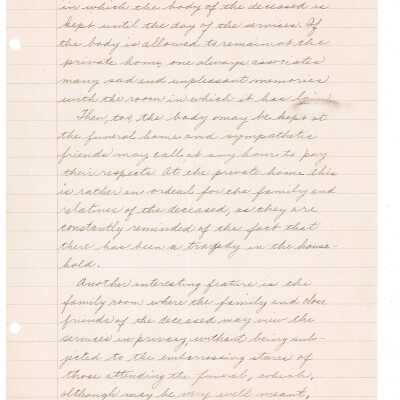 in which the body of the deceased is
kept until the day of the services. If
the body is allowed to remain at the
private home, one always associates
many sad and unpleasant memories
with the room in which it has lain.
Then, too, the body may be kept at
the funeral home and sympathetic
friends may call at any hour to pay
their respects. At the private home this
is rather an ordeal for the family and
relatives of the deceased, as they are
constantly reminded of the fact that
there has been a tragedy in the house-
hold.
Another interesting feature is the
family room where the family and close
friends of the deceased may view the
services in privacy without being sub-
jected to the embarrassing stares of
those attending the funeral, which,
although may be very well meant,